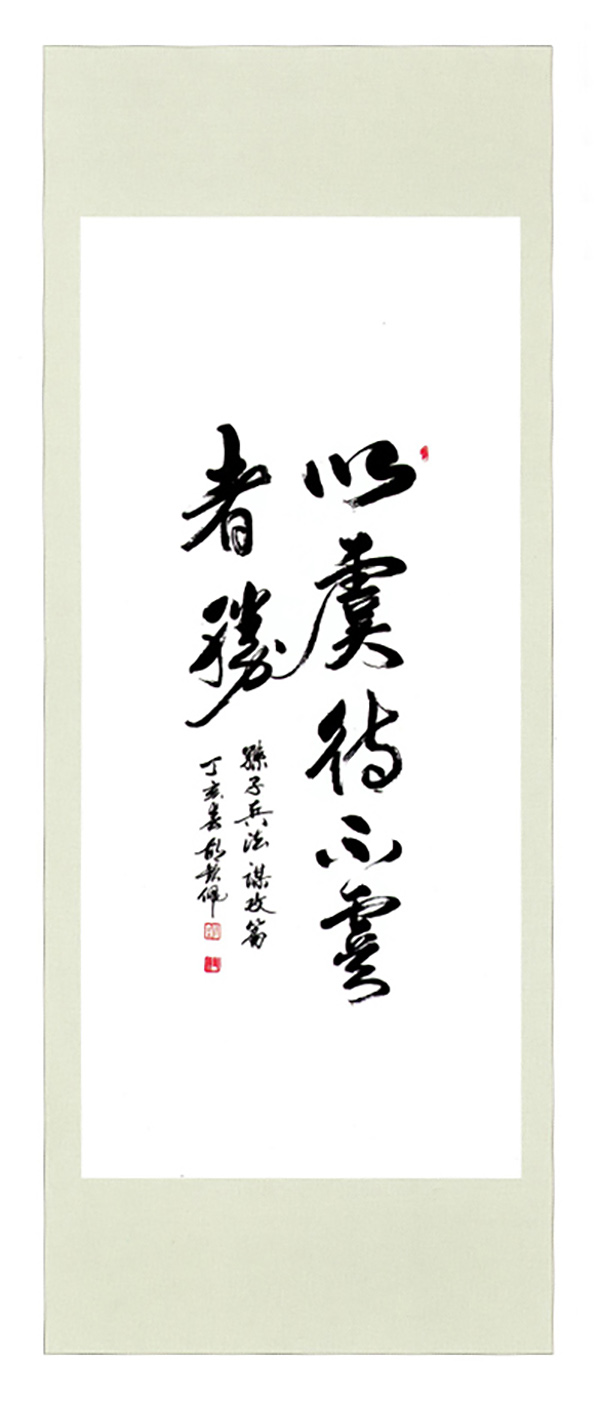 以虞待不虞
者勝
孫子兵法謀攻篇
丁亥春胡秋佩